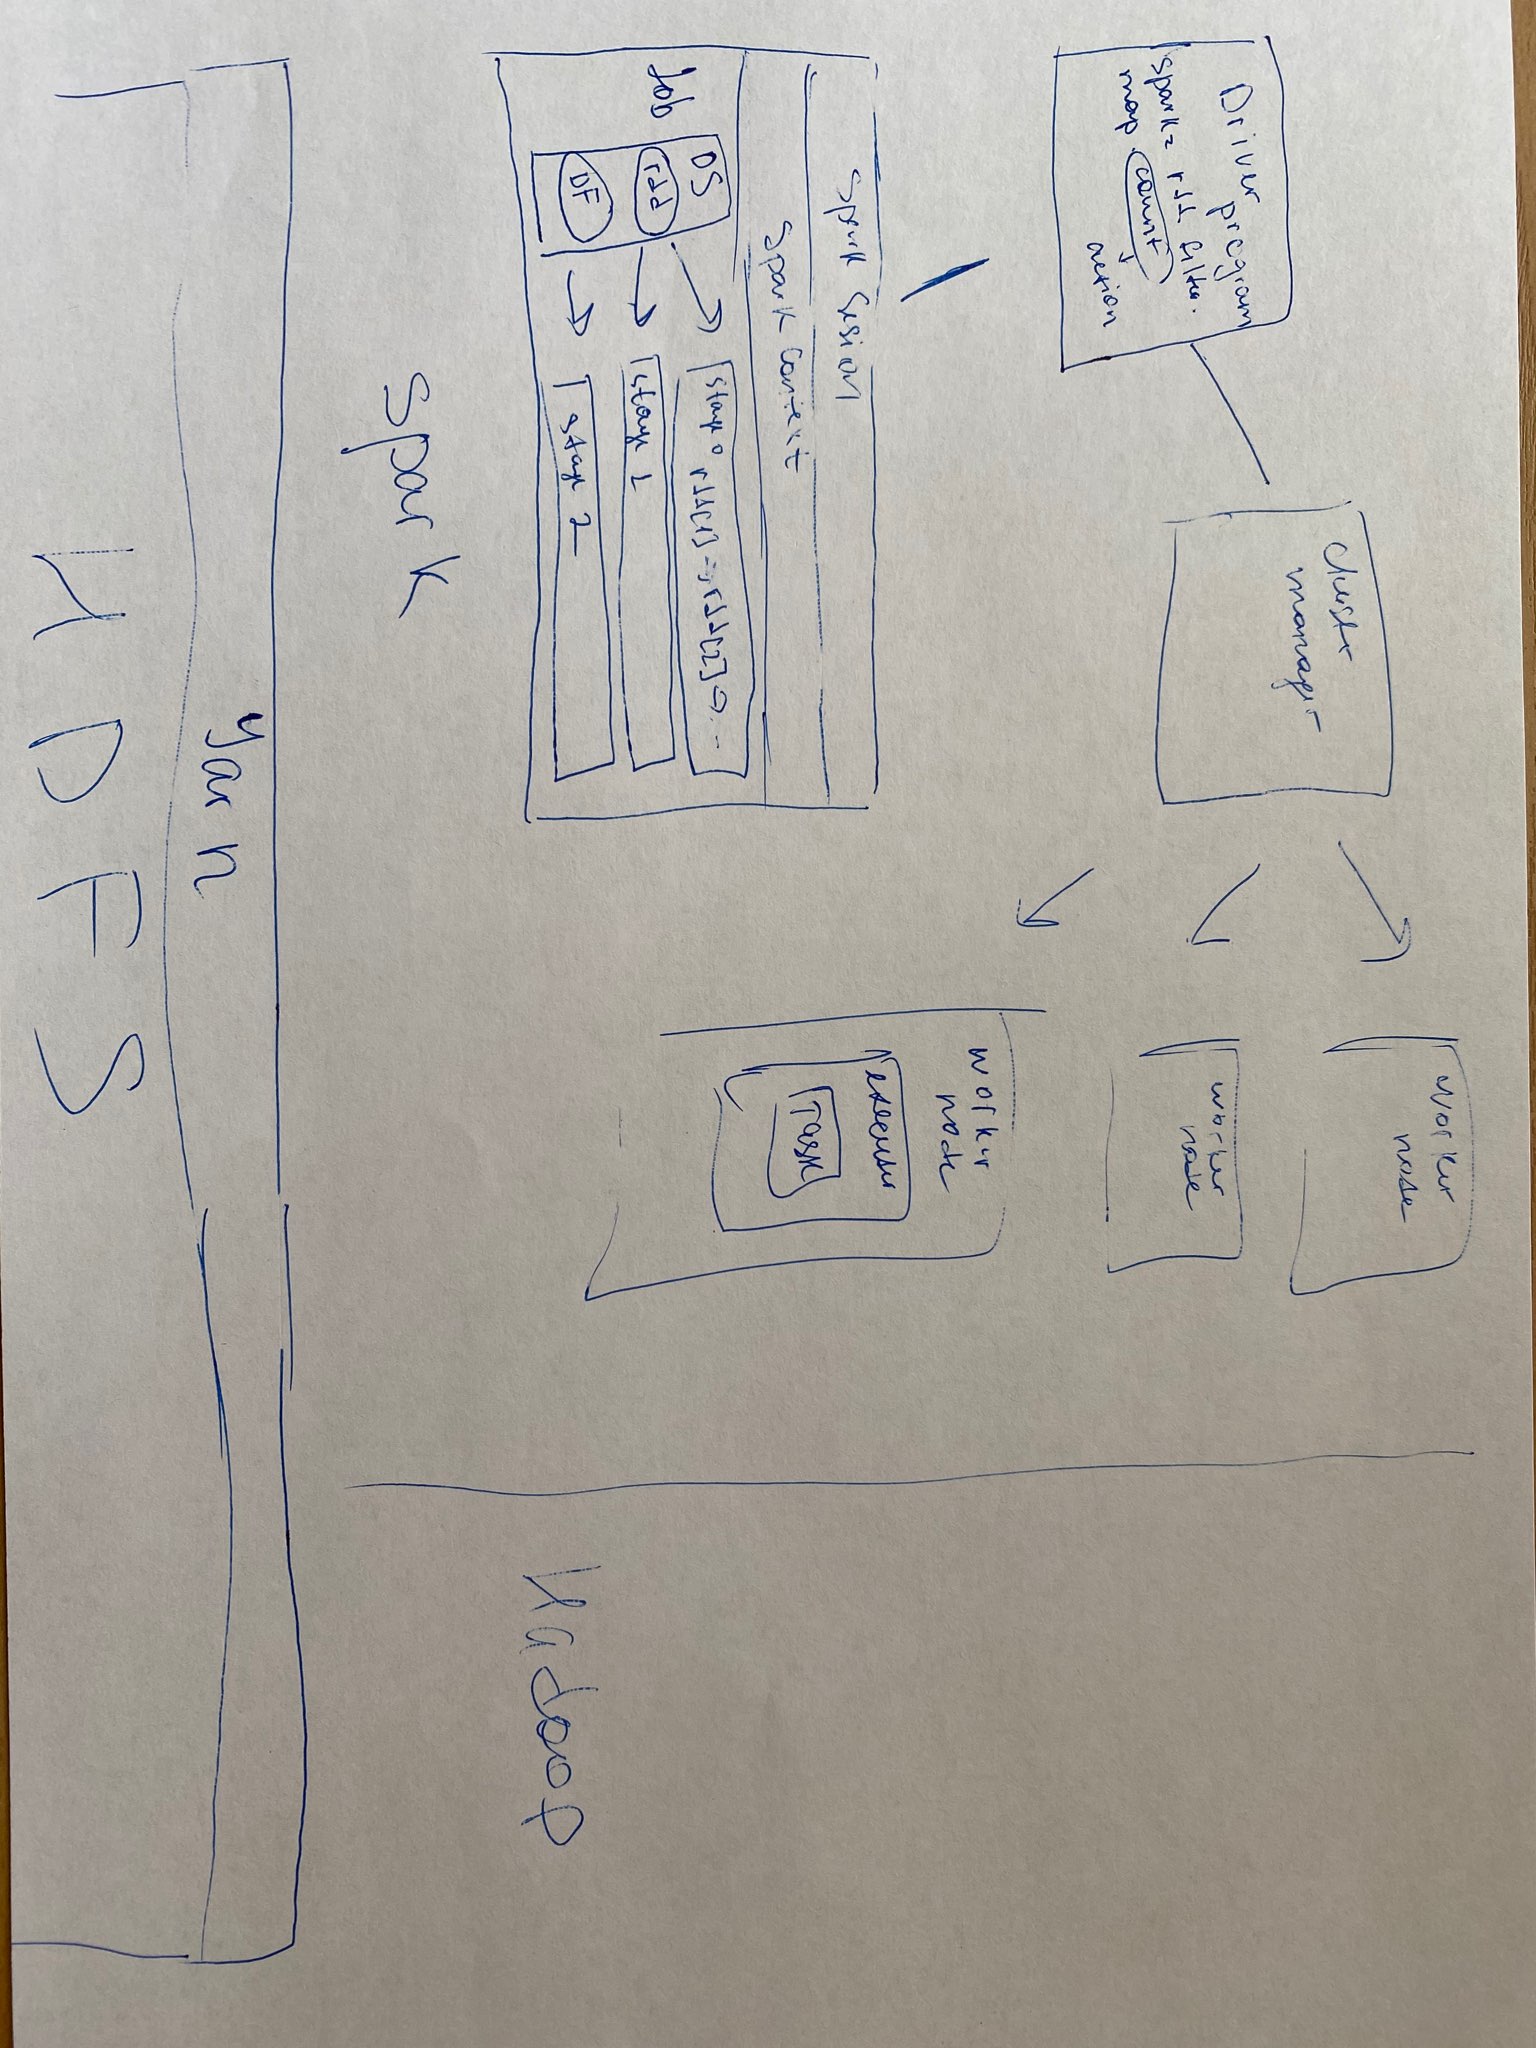 Driver program
spark = rdd filter.
map. count
action
cluster
manager
worker
node
worker
node
worker
node
executor
Task
Spark Session
Spark Context
Job
DS
rdd
DF
stage 0 rdd[1] => rdd[2] => ...
stage 1
stage 2
Spark
Hadoop
Yarn
HDFS